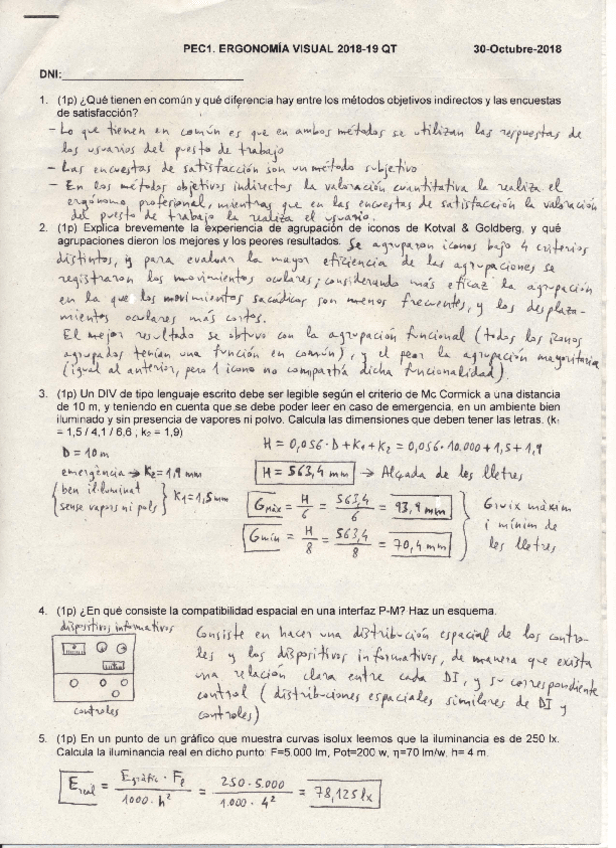 PEC1. ERGONOMÍA VISUAL 2018-19 QT 30-Octubre-2018
DNI:
1. (1p) ¿Qué tienen en común y qué diferencia hay entre los métodos objetivos indirectos y las encuestas
de satisfacción?
- Lo que tienen en común es que en ambos métodos se utilizan las respuestas de
los usuarios del puesto de trabajo
- Las encuestas de satisfacción son un método subjetivo
- En los métodos objetivos indirectos la valoración cuantitativa la realiza el
ergónomo profesional, mientras que en las encuestas de satisfacción la valoración
del puesto de trabajo la realiza el usuario.
2. (1p) Explica brevemente la experiencia de agrupación de iconos de Kotval & Goldberg, y qué
agrupaciones dieron los mejores y los peores resultados. Se agruparon iconos bajo 4 criterios
distintos, y para evaluar la mayor eficiencia de las agrupaciones se
registraron los movimientos oculares; considerando más eficaz la agrupación
en la que los movimientos sacádicos son menos frecuentes, y los desplaza-
mientos oculares más cortos.
El mejor resultado se obtuvo con la agrupación funcional (todos los iconos
agrupados tenían una función en común), y el peor la agrupación mayoritaria
(igual al anterior, pero 1 icono no compartía dicha funcionalidad).
3. (1p) Un DIV de tipo lenguaje escrito debe ser legible según el criterio de Mc Cormick a una distancia
de 10 m, y teniendo en cuenta que se debe poder leer en caso de emergencia, en un ambiente bien
iluminado y sin presencia de vapores ni polvo. Calcula las dimensiones que deben tener las letras. (k₁
= 1,5 / 4,1 / 6,6 ; k₂ = 1,9)
D = 10 m
H = 0,056 · D + K₁ + K₂ = 0,056 · 10.000 + 1,5 + 1,9
emergència → K₂ = 1,9 mm
H = 563,4 mm → Alçada de les lletres
{ ben il·luminat
sense vapors ni pols } K₁ = 1,5 mm
Gmàx = H/6 = 563,4/6 = 93,9 mm
Gmín = H/8 = 563,4/8 = 70,4 mm
Gruix màxim
i mínim de
les lletres
4. (1p) ¿En qué consiste la compatibilidad espacial en una interfaz P-M? Haz un esquema.
dispositivos informativos
controles
Consiste en hacer una distribución espacial de los contro-
les y los dispositivos informativos, de manera que exista
una relación clara entre cada DI, y su correspondiente
control (distribuciones espaciales similares de DI y
controles)
5. (1p) En un punto de un gráfico que muestra curvas isolux leemos que la iluminancia es de 250 lx.
Calcula la iluminancia real en dicho punto: F=5.000 lm, Pot=200 w, η=70 lm/w, h= 4 m.
Ereal = Egràfic · Fl / 1000 · h² = 250 · 5.000 / 1.000 · 4² = 78,125 lx